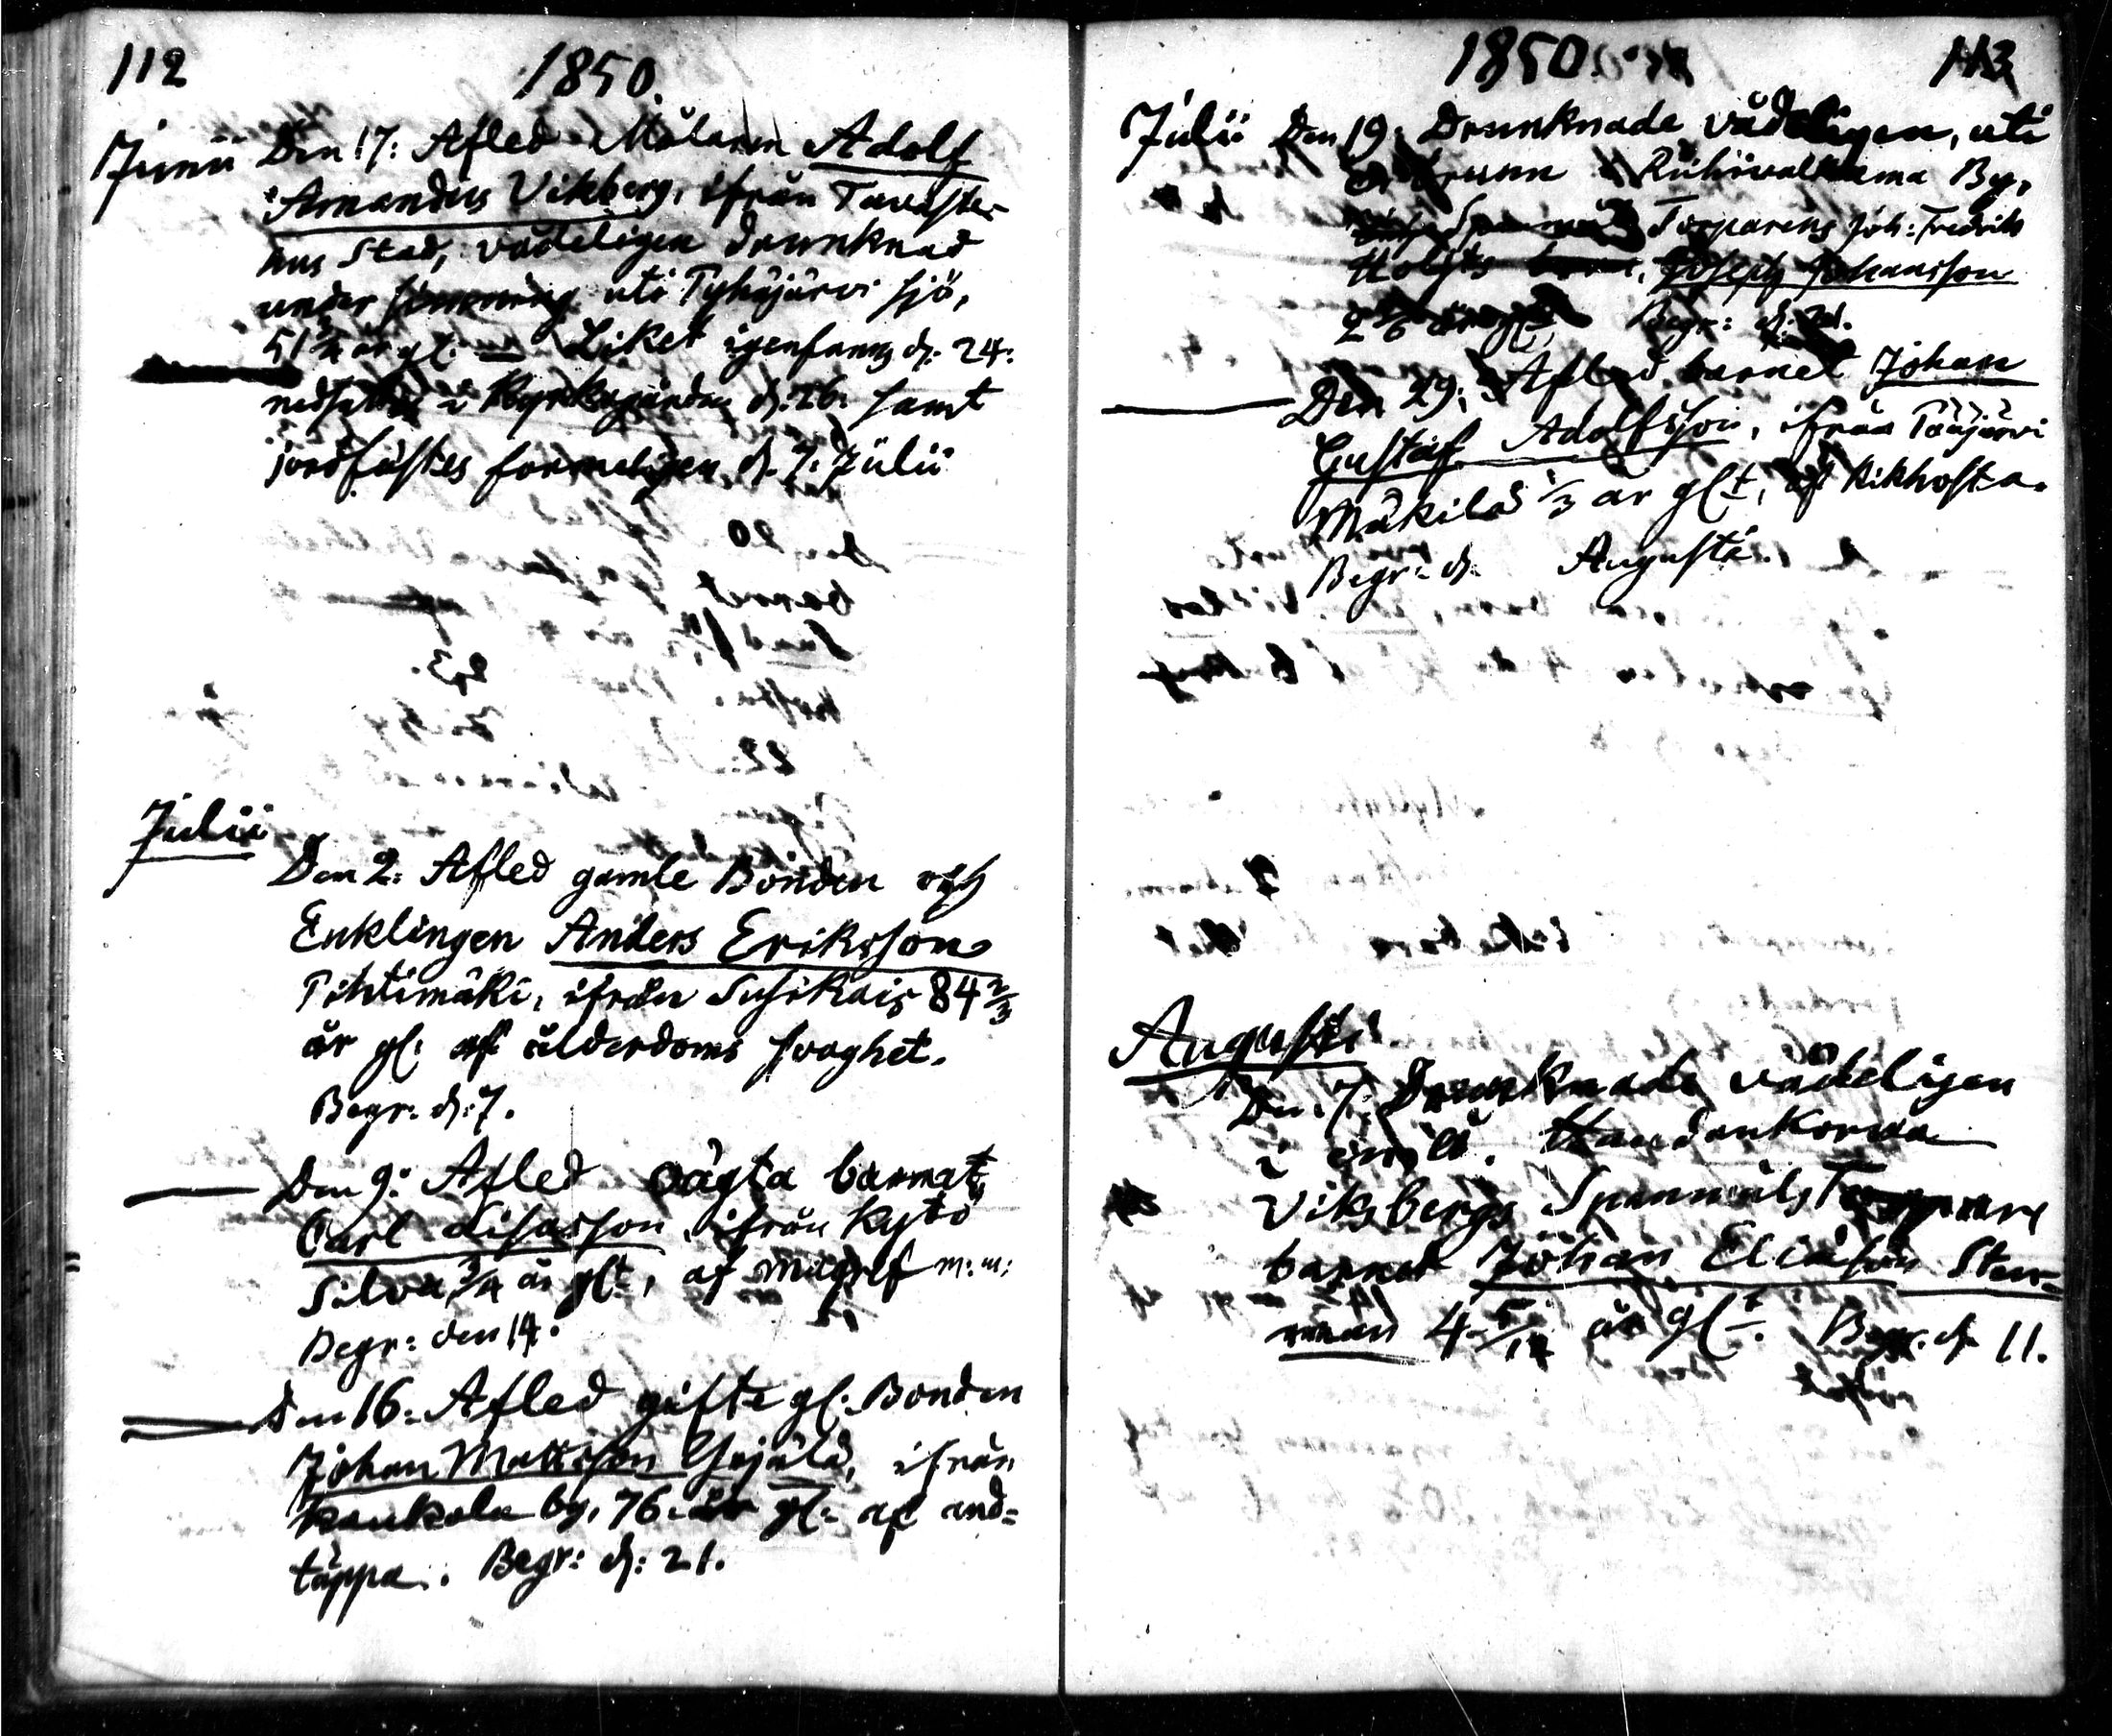 112
1850.
Junii Den 17: Afled Målaren Adolf
Amandus Vikberg, ifrån Tavaste-
hus Stad, vådeligen drunknad
under simning uti Tyhäjärvi sjö,
51 3/4 år gl: Liket igenfanns d: 24.
nedsattes i Kyrkogården d. 26. samt
jordfästes formeligen d. 7. Julii
Julii
Den 2: Afled gamle Bonden och
Enklingen Anders Eriksson
Pihtimäki, ifrån Susikais 84 2/3
år gl: af ålderdoms svaghet.
Begr. d: 7.
Den 9: Afled oägta barnet
Carl Lisasson ifrån Kytö
Silva, 3/4 år glt, af m: m:
Begr: den 14.
Den 16. Afled gifte gl: Bonden
Johan Mattsson Yrjälä, ifrån
Kaukola by, 76. år gl: af and-
täppa. Begr: d: 21.
1850.
113
Julii Den 19. Drunknade vådeligen, uti
en brunn i Riihivalkama By,
Torparens Joh: Fredrik
Joseph Johansson
Begr: d: 21.
Den 29: Afled barnet Johan
Gustaf Adolfsson, ifrån
Mäkilä 1/3 år glt, af kikhosta.
Begr: d. Augusti.
Augusti
Den 7. Drunknade vådeligen
i en å. Haudankorva
Viksbergs Spannmåls Torpare
barnet Johan Eliasson Sten-
man 4 5/12 år glt. Begr. d. 11.